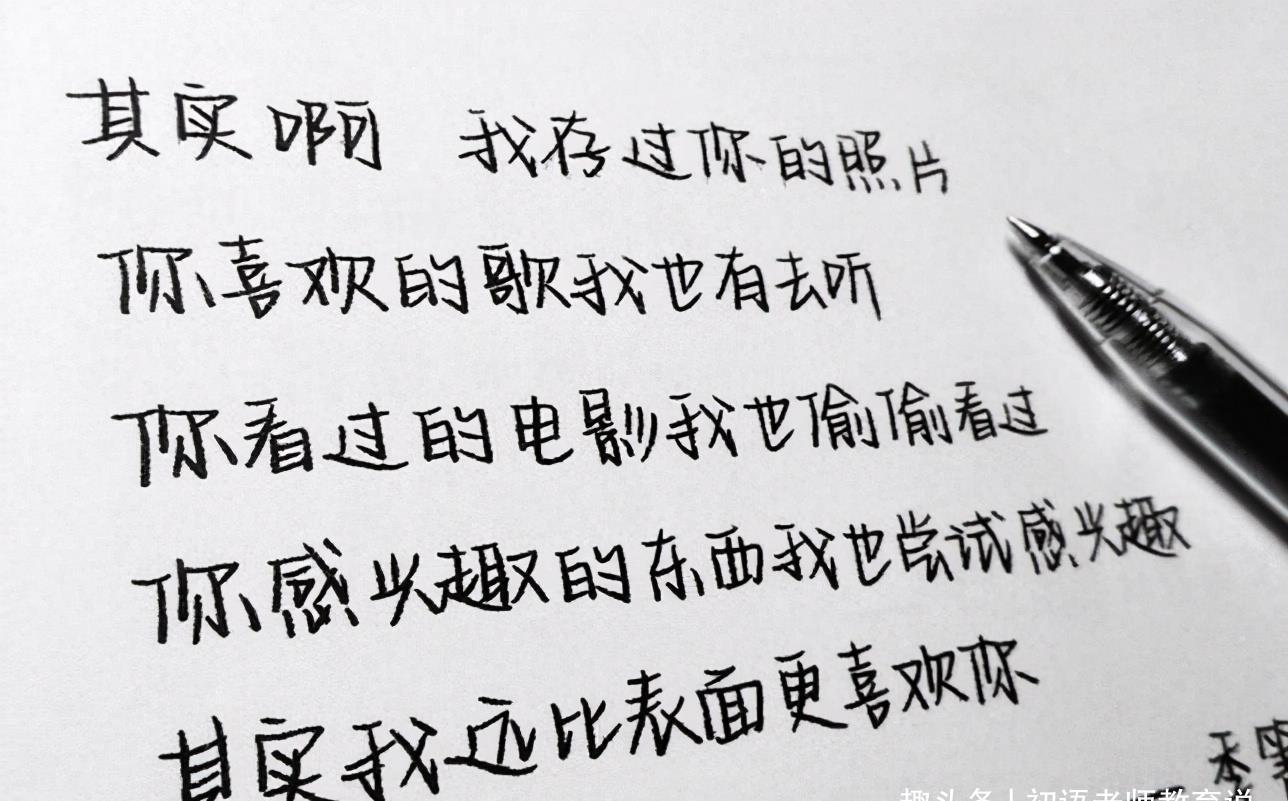 其实啊 我存过你的照片
你喜欢的歌我也有去听
你看过的电影我也偷偷看过
你感兴趣的东西我也尝试感兴趣
其实我远比表面更喜欢你
趣头条丨初语老师教育说